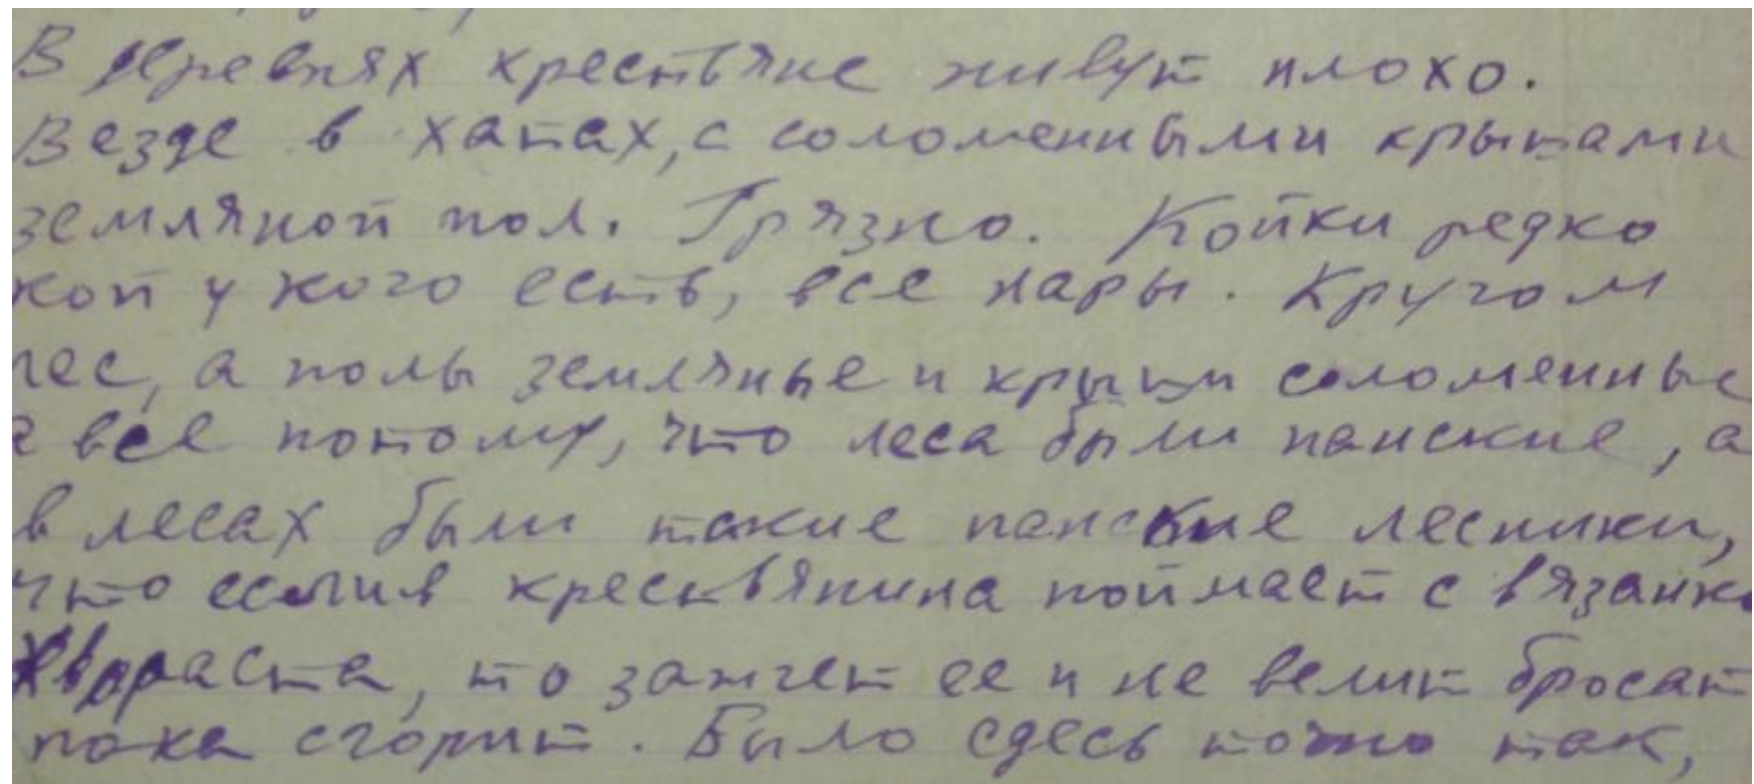 В деревнях крестьяне живут плохо.
Везде в хатах, с соломенными крышами
земляной пол. Грязно. Койки редко
кой у кого есть, все нары. Кругом
лес, а полы земляные и крыши соломенные
а все потому, что леса были панские, а
в лесах были такие панские лесники,
что если в крестьянина поймает с вязанко
хвораста, то зажгет ее и не велит бросат
пока сгорит. Было сдесь точно так,